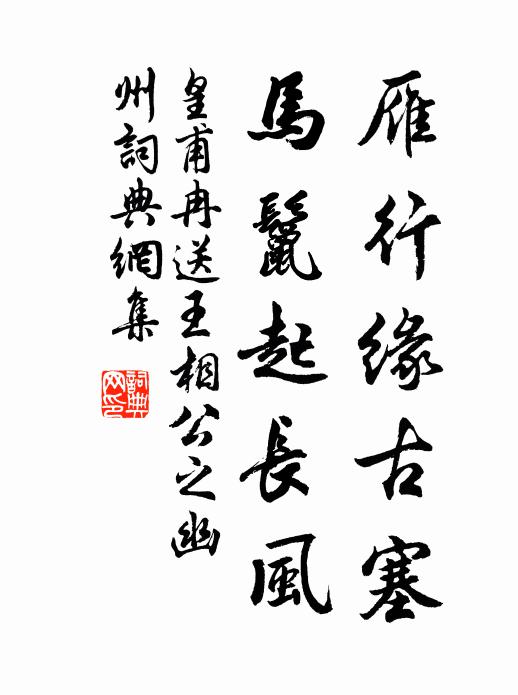 雁行緣古塞
馬鬣起長風
皇甫冉送王相公之幽
州詞典網集
詞典网印